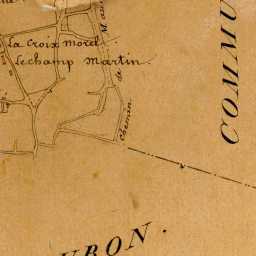 La Croix Morel
Lechamp Martin.
Chemin de
COMMU
URON.